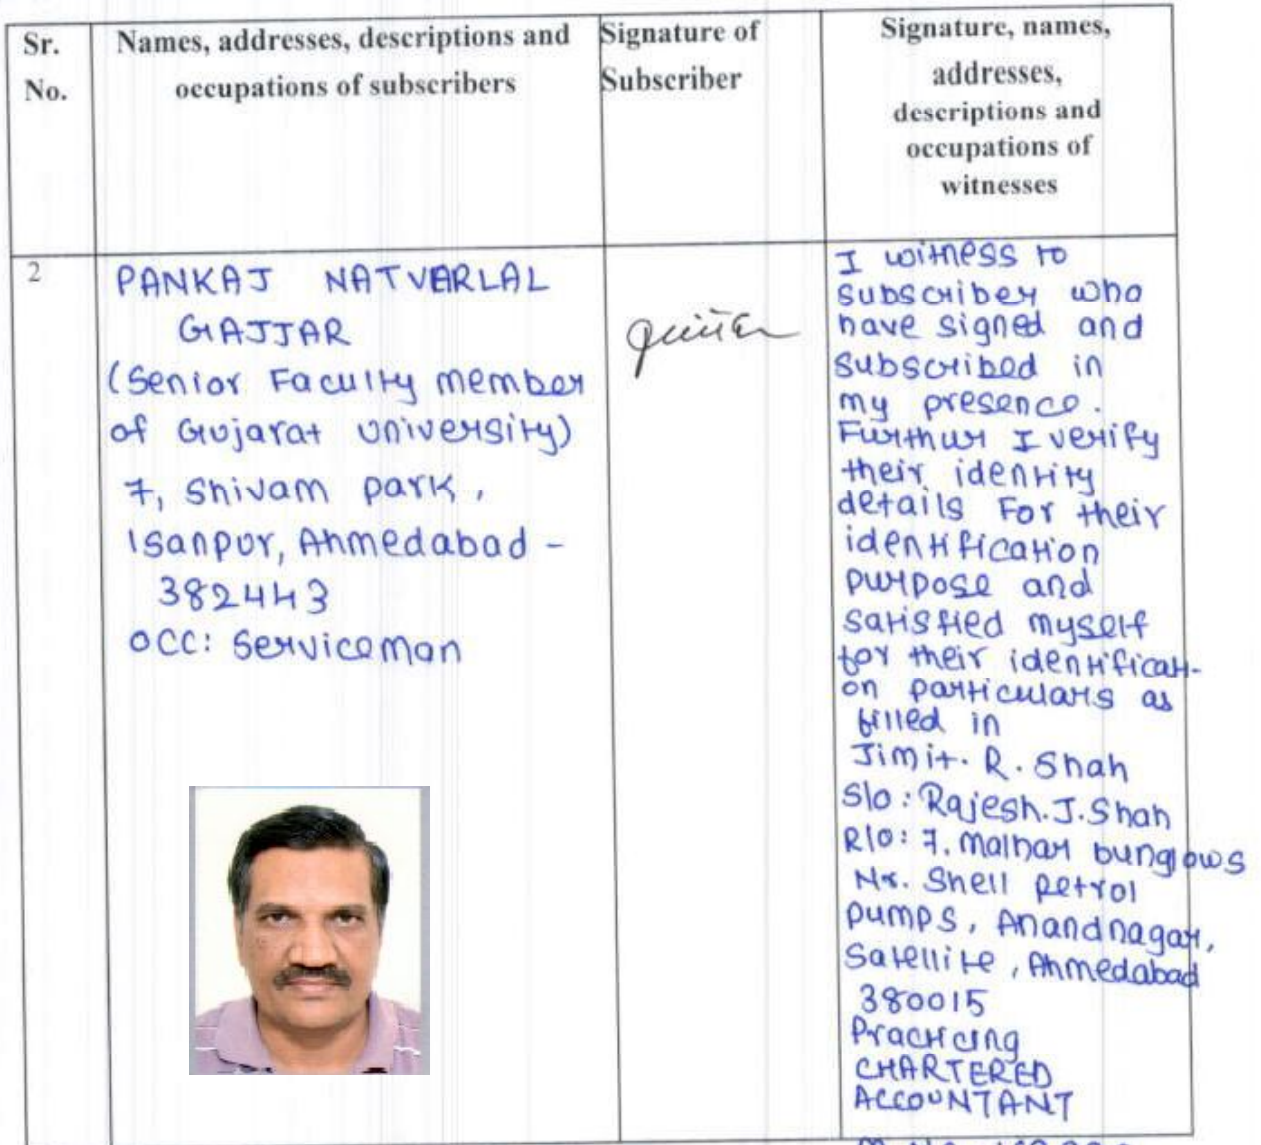 Sr.
No.
Names, addresses, descriptions and
occupations of subscribers
Signature of
Subscriber
Signature, names,
addresses,
descriptions and
occupations of
witnesses
2
PANKAJ NATVARLAL
GAJJAR
(Senior Faculty member
of Gujarat University)
7, Shivam park,
Isanpur, Ahmedabad -
382443
OCC: Serviceman
I witness to
subscriber who
have signed and
subscribed in
my presence.
Furthur I verify
their identity
details For their
identification
purpose and
satisfied myself
for their identificati-
on particulars as
filled in
Jimit. R. Shah
S/o: Rajesh.J.Shah
R/o: 7, Malhar bunglows
Nr. Shell petrol
pumps, Anandnagar,
Satellite, Ahmedabad
380015
Practicing
CHARTERED
ACCOUNTANT